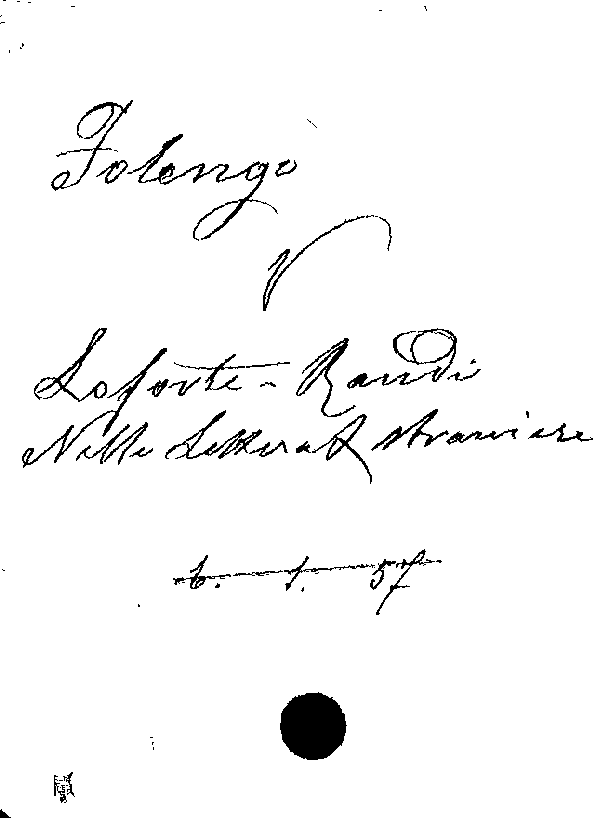 Folengo
V
Laforte-Randi
Nelle Letterat straniere
6. 1. 57